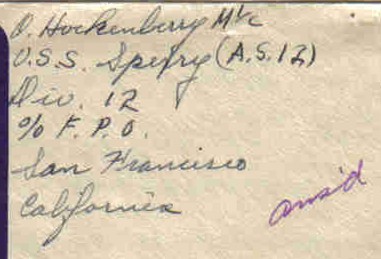 O. Hockenberry M½c
U.S.S. Sperry (A.S. 12)
Div. 12
℅ F.P.O.
San Francisco
California
ans'd